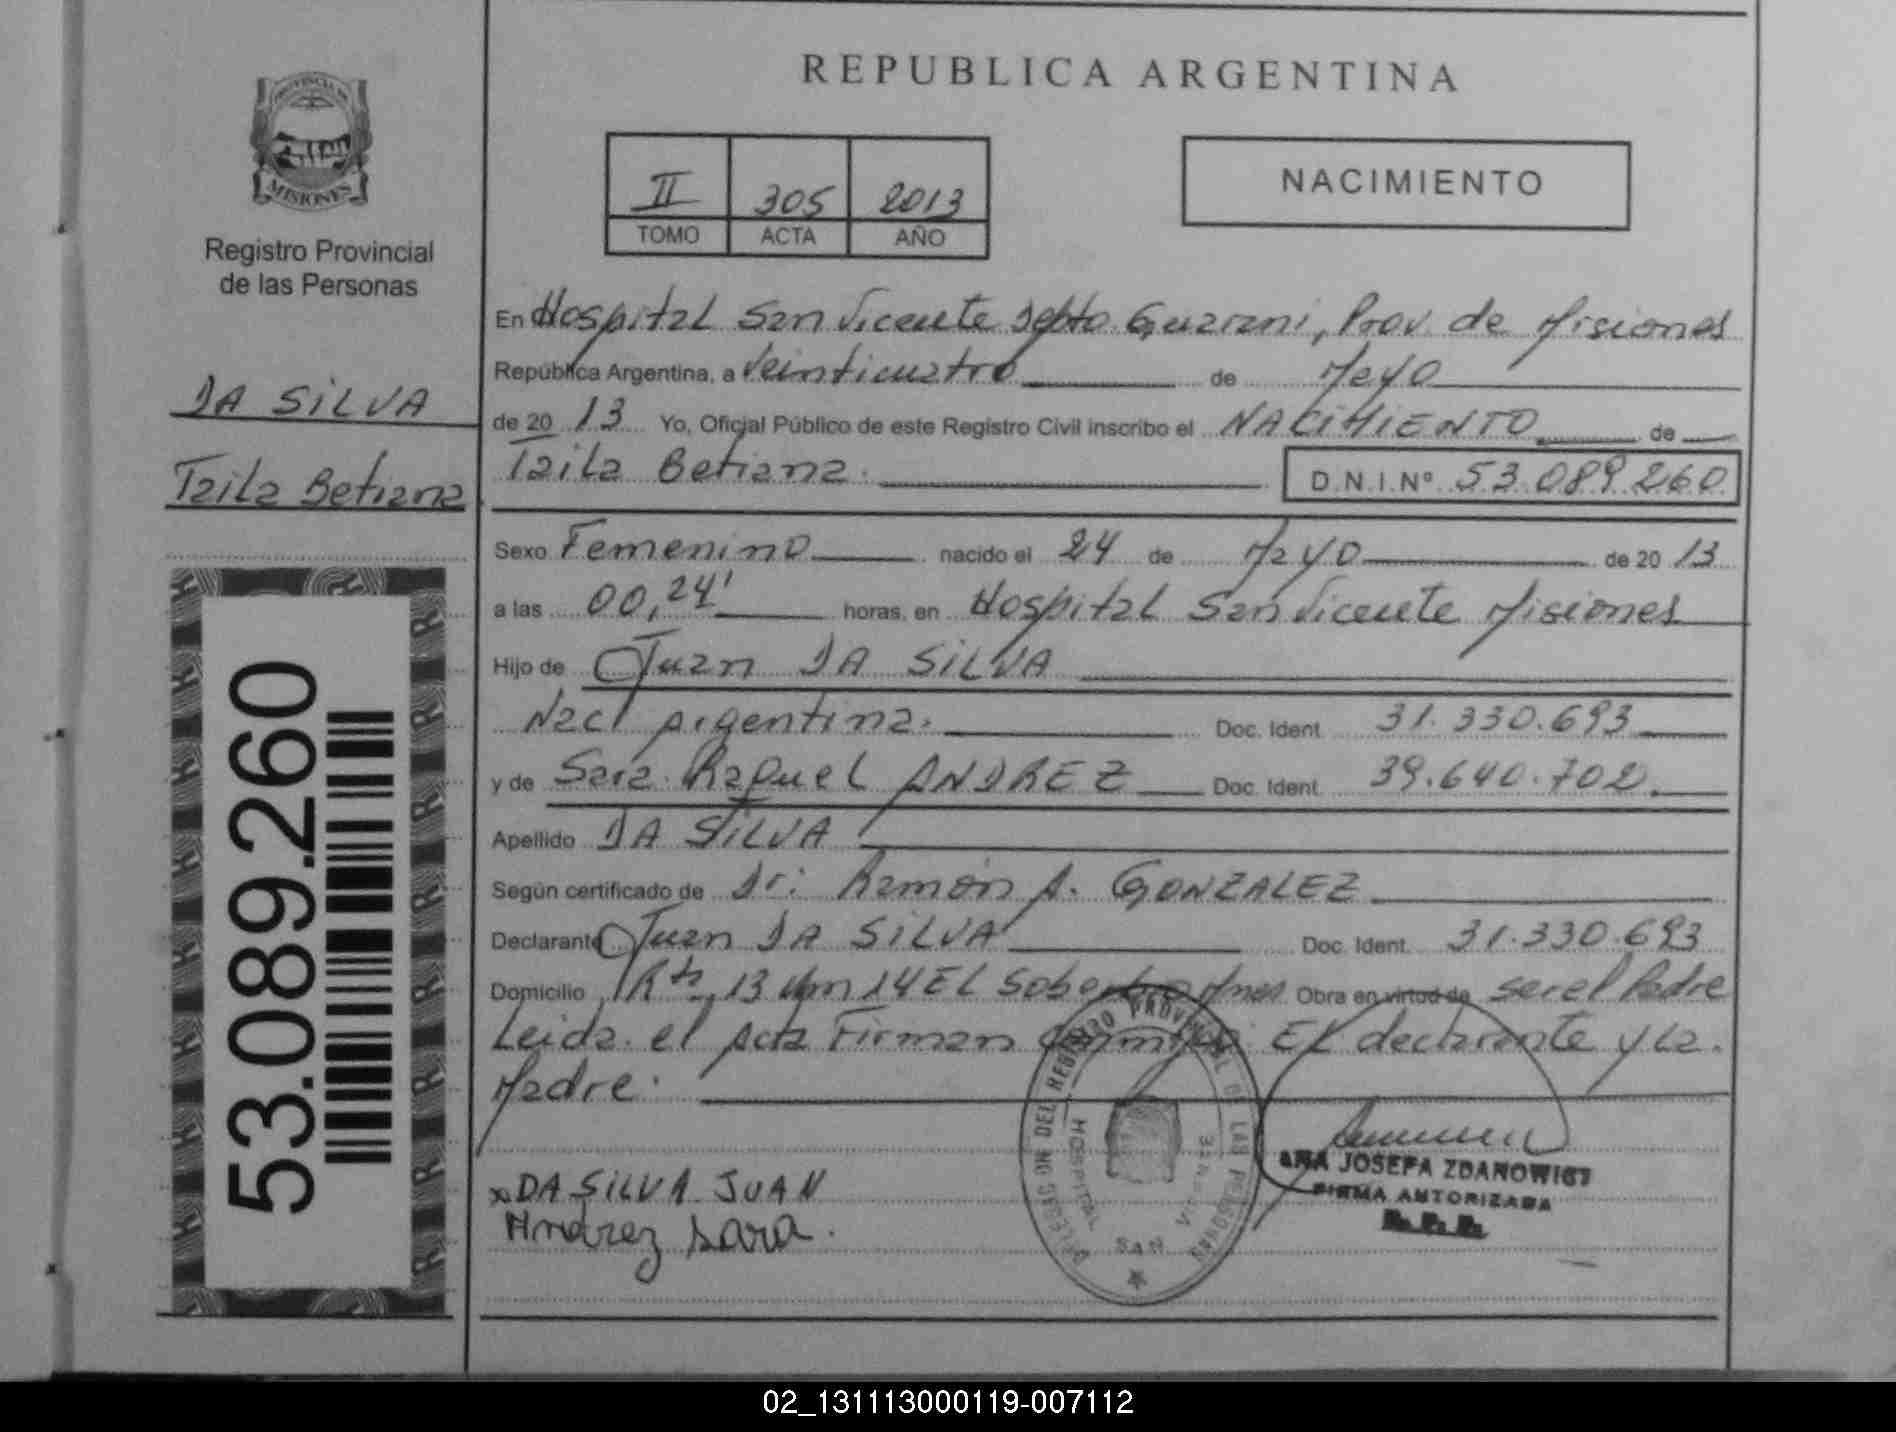 REPUBLICA ARGENTINA
PROVINCIA DE
MISIONES
Registro Provincial
de las Personas
DA SILVA
Taila Betiana
53.089.260
II 305 2013
TOMO ACTA AÑO
NACIMIENTO
En Hospital San Vicente Depto. Guarani, Prov. de Misiones
República Argentina, a Veinticuatro de Mayo
de 20 13 Yo, Oficial Público de este Registro Civil inscribo el NACIMIENTO de
Taila Betiana. D.N.I.Nº 53.089.260
Sexo Femenino nacido el 24 de Mayo de 20 13
a las 00,24' horas, en Hospital San Vicente Misiones
Hijo de Juan DA SILVA
Nac. Argentina. Doc. Ident. 31.330.693
y de Sara Raquel ANDREZ Doc. Ident. 39.640.702.
Apellido DA SILVA
Según certificado de Dr: Ramón A. GONZALEZ
Declarante Juan DA SILVA Doc. Ident. 31.330.693
Domicilio Rta, 13 Km 14 EL Soberbio Mnes Obra en virtud de ser el Padre
Leida el Acta Firman Conmigo: El declarante y La
Madre.
x DA SILVA JUAN
Andrez Sara.
DELEGACION DEL REGISTRO PROVINCIAL DE LAS PERSONAS
HOSPITAL SAN VICENTE
ANA JOSEFA ZDANOWICZ
FIRMA AUTORIZADA
R.P.P.
02_131113000119-007112